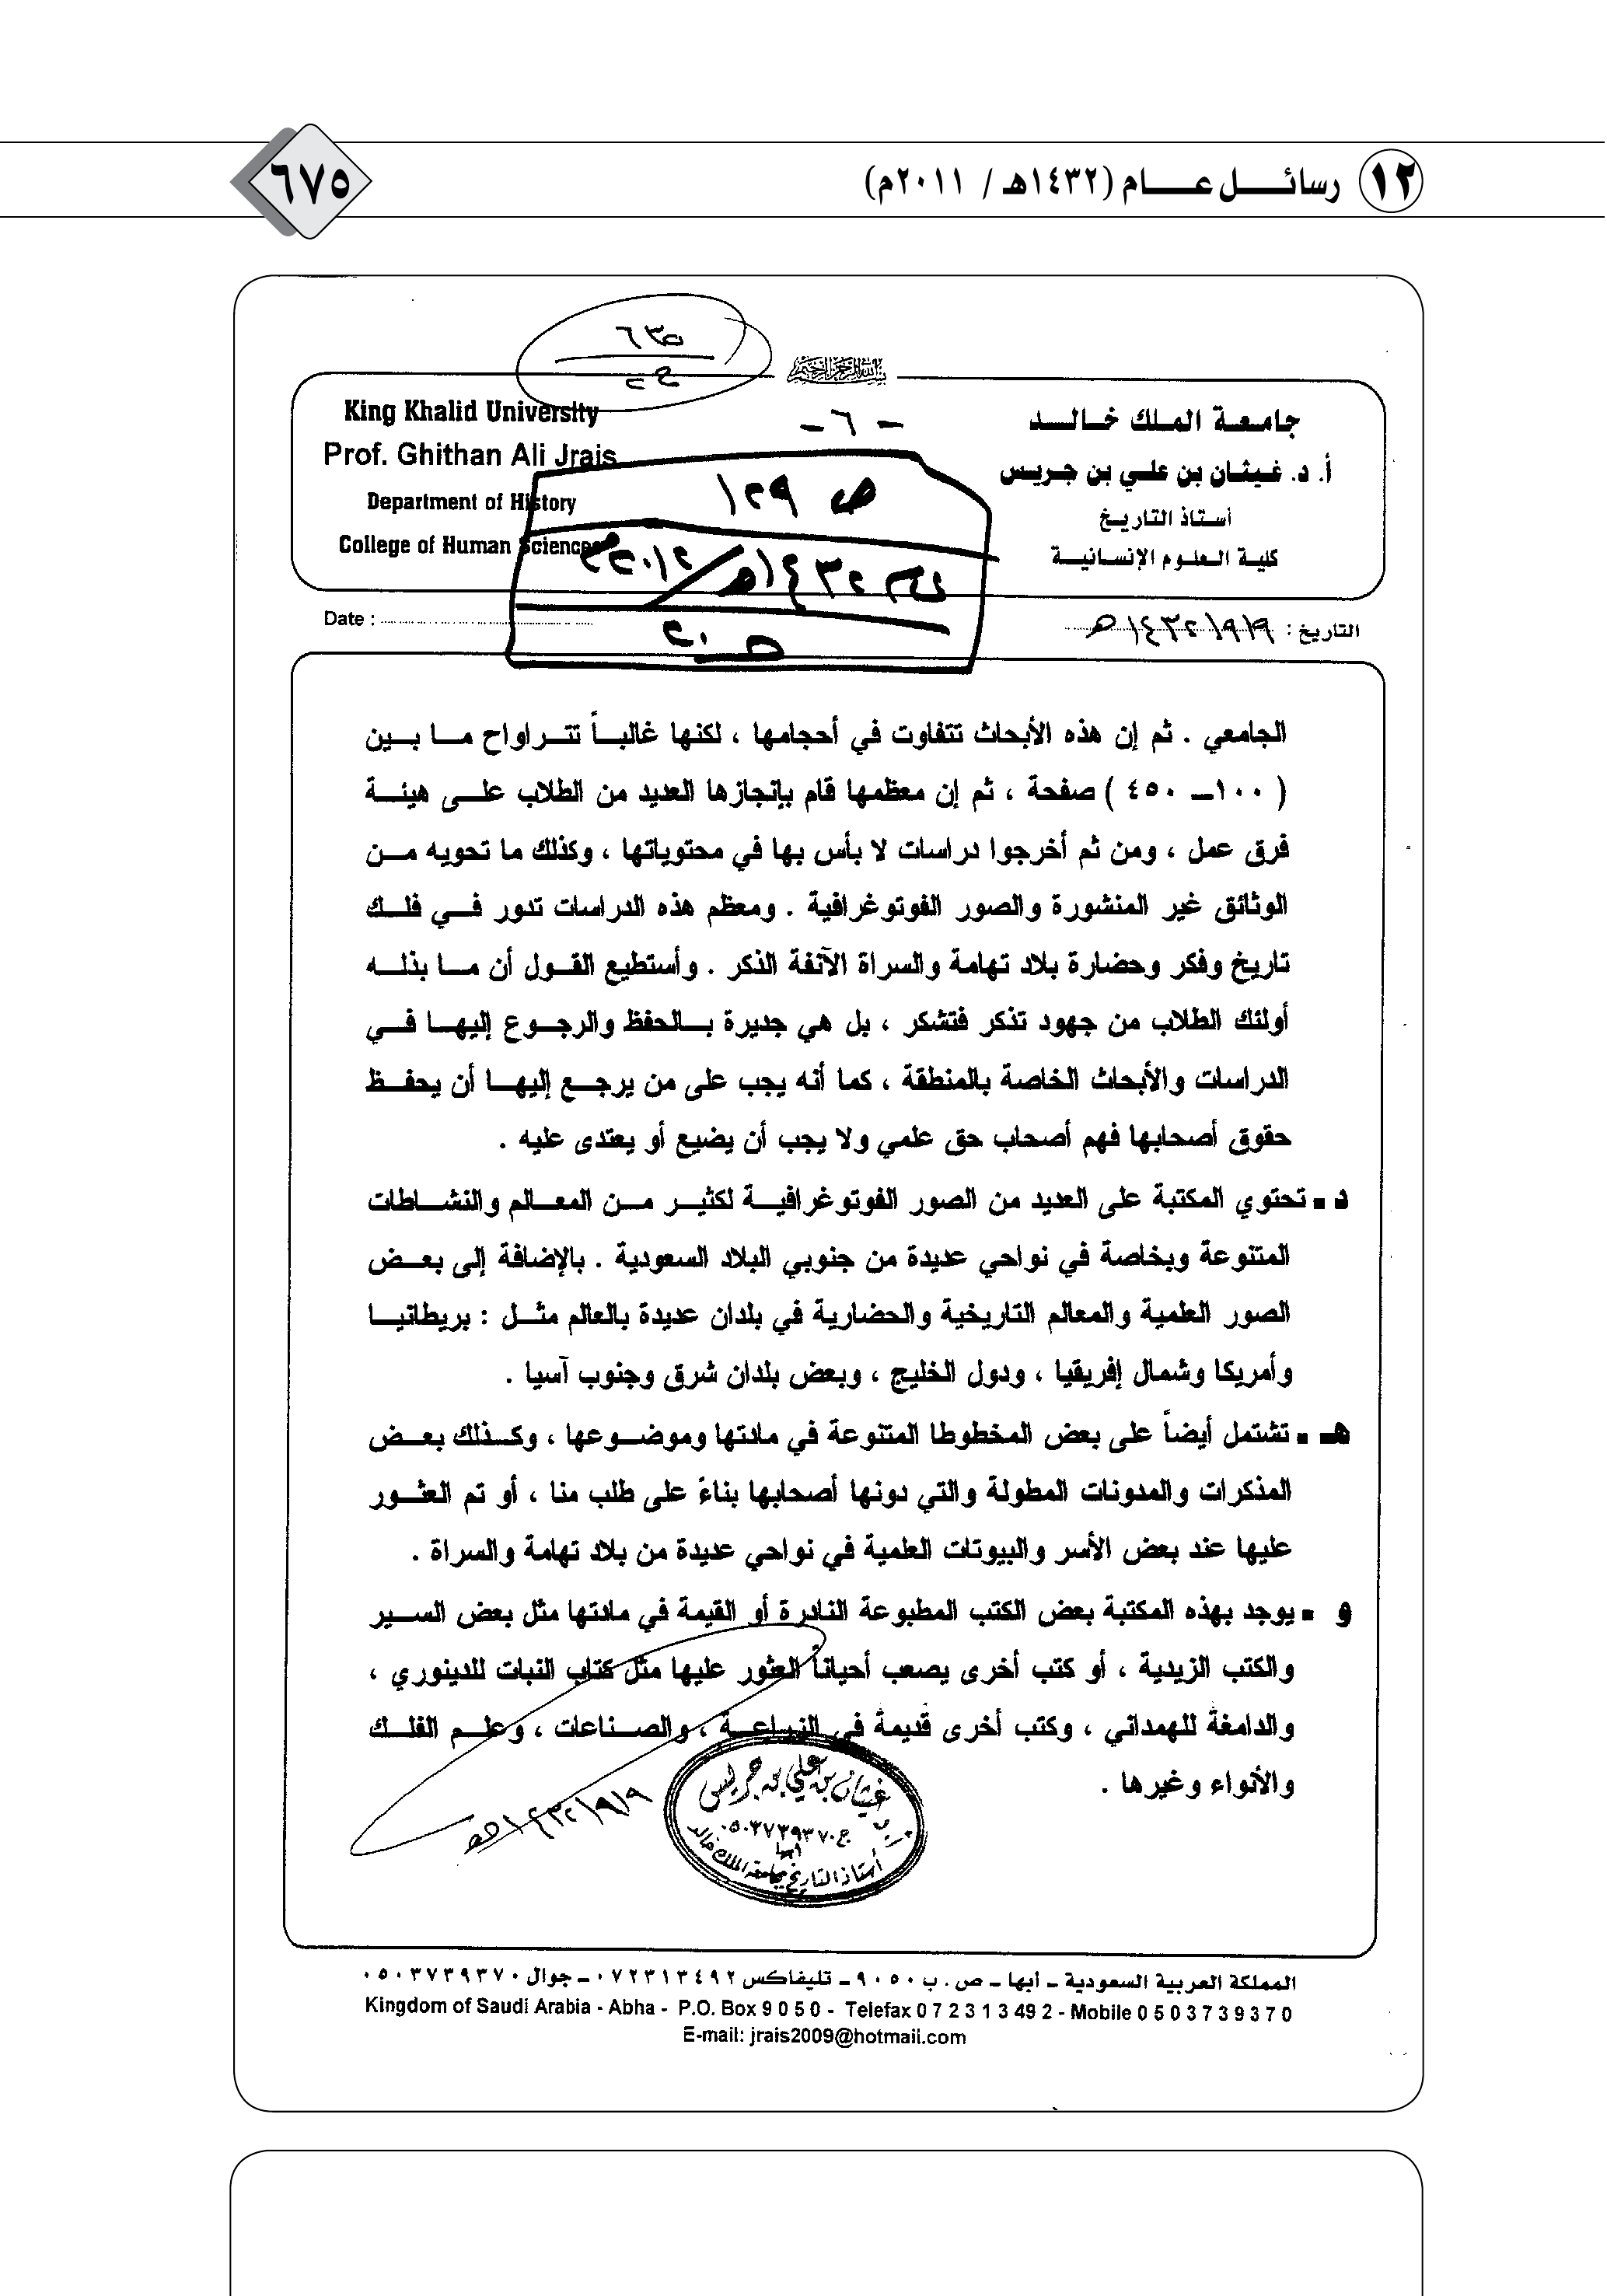 ١٢ رسائـــل عـــام (١٤٣٢هـ / ٢٠١١م)
٦٧٥
٦٣٥
بسم الله الرحمن الرحيم
King Khalid University
Prof. Ghithan Ali Jrais
Department of History
College of Human Sciences
جامـعـة المـلك خـالـــد
أ. د. غـيـثـان بن علـي بن جريـس
أسـتـاذ التاريـخ
كليـة الـعلـوم الإنسـانيـة
- ٦ -
ص ١٢٩
Date :
التاريخ : ١٤٣٢/٩/٩هـ
الجامعي . ثم إن هذه الأبحاث تتفاوت في أحجامها ، لكنها غالباً تتراواح ما بين
( ١٠٠ــ ٤٥٠ ) صفحة ، ثم إن معظمها قام بإنجازها العديد من الطلاب على هيئة
فرق عمل ، ومن ثم أخرجوا دراسات لا بأس بها في محتوياتها ، وكذلك ما تحويه من
الوثائق غير المنشورة والصور الفوتوغرافية . ومعظم هذه الدراسات تدور في فلك
تاريخ وفكر وحضارة بلاد تهامة والسراة الآنفة الذكر . وأستطيع القول أن ما بذله
أولئك الطلاب من جهود تذكر فتشكر ، بل هي جديرة بالحفظ والرجوع إليها في
الدراسات والأبحاث الخاصة بالمنطقة ، كما أنه يجب على من يرجع إليها أن يحفظ
حقوق أصحابها فهم أصحاب حق علمي ولا يجب أن يضيع أو يعتدى عليه .
د - تحتوي المكتبة على العديد من الصور الفوتوغرافية لكثير من المعالم والنشاطات
المتنوعة وبخاصة في نواحي عديدة من جنوبي البلاد السعودية . بالإضافة إلى بعض
الصور العلمية والمعالم التاريخية والحضارية في بلدان عديدة بالعالم مثل : بريطانيا
وأمريكا وشمال إفريقيا ، ودول الخليج ، وبعض بلدان شرق وجنوب آسيا .
هـ - تشتمل أيضاً على بعض المخطوطا المتنوعة في مادتها وموضوعها ، وكذلك بعض
المذكرات والمدونات المطولة والتي دونها أصحابها بناءً على طلب منا ، أو تم العثور
عليها عند بعض الأسر والبيوتات العلمية في نواحي عديدة من بلاد تهامة والسراة .
و - يوجد بهذه المكتبة بعض الكتب المطبوعة النادرة أو القيمة في مادتها مثل بعض السير
والكتب الزيدية ، أو كتب أخرى يصعب أحياناً العثور عليها مثل كتاب النبات للدينوري ،
والدامغة للهمداني ، وكتب أخرى قديمة في الزراعة ، والصناعات ، وعلم الفلك
والأنواء وغيرها .
١٤٣٢/٩/٩هـ
غيثان بن علي بن جريس
ج ٠٥٠٣٧٣٩٣٧٠
أبها
أستاذ التاريخ بجامعة الملك خالد
المملكة العربية السعودية – أبها – ص . ب ٩٠٥٠ – تليفاكس ٠٧٢٣١٣٤٩٢ – جوال ٠٥٠٣٧٣٩٣٧٠
Kingdom of Saudi Arabia - Abha - P.O. Box 9 0 5 0 - Telefax 0 7 2 3 1 3 4 9 2 - Mobile 0 5 0 3 7 3 9 3 7 0
E-mail: jrais2009@hotmail.com